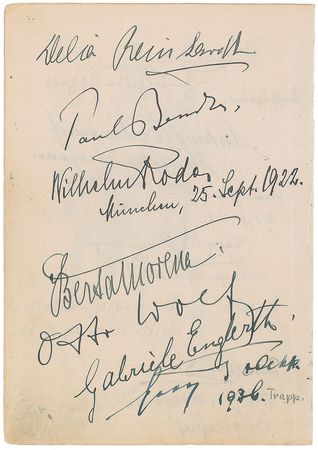 Delia Reinhardt.
Paul Bender,
Wilhelm Rode
München, 25. Sept. 1922.
Berta Morena.
Otto Wolf
Gabriele Englerth.
Trapp
1926. Trapp.